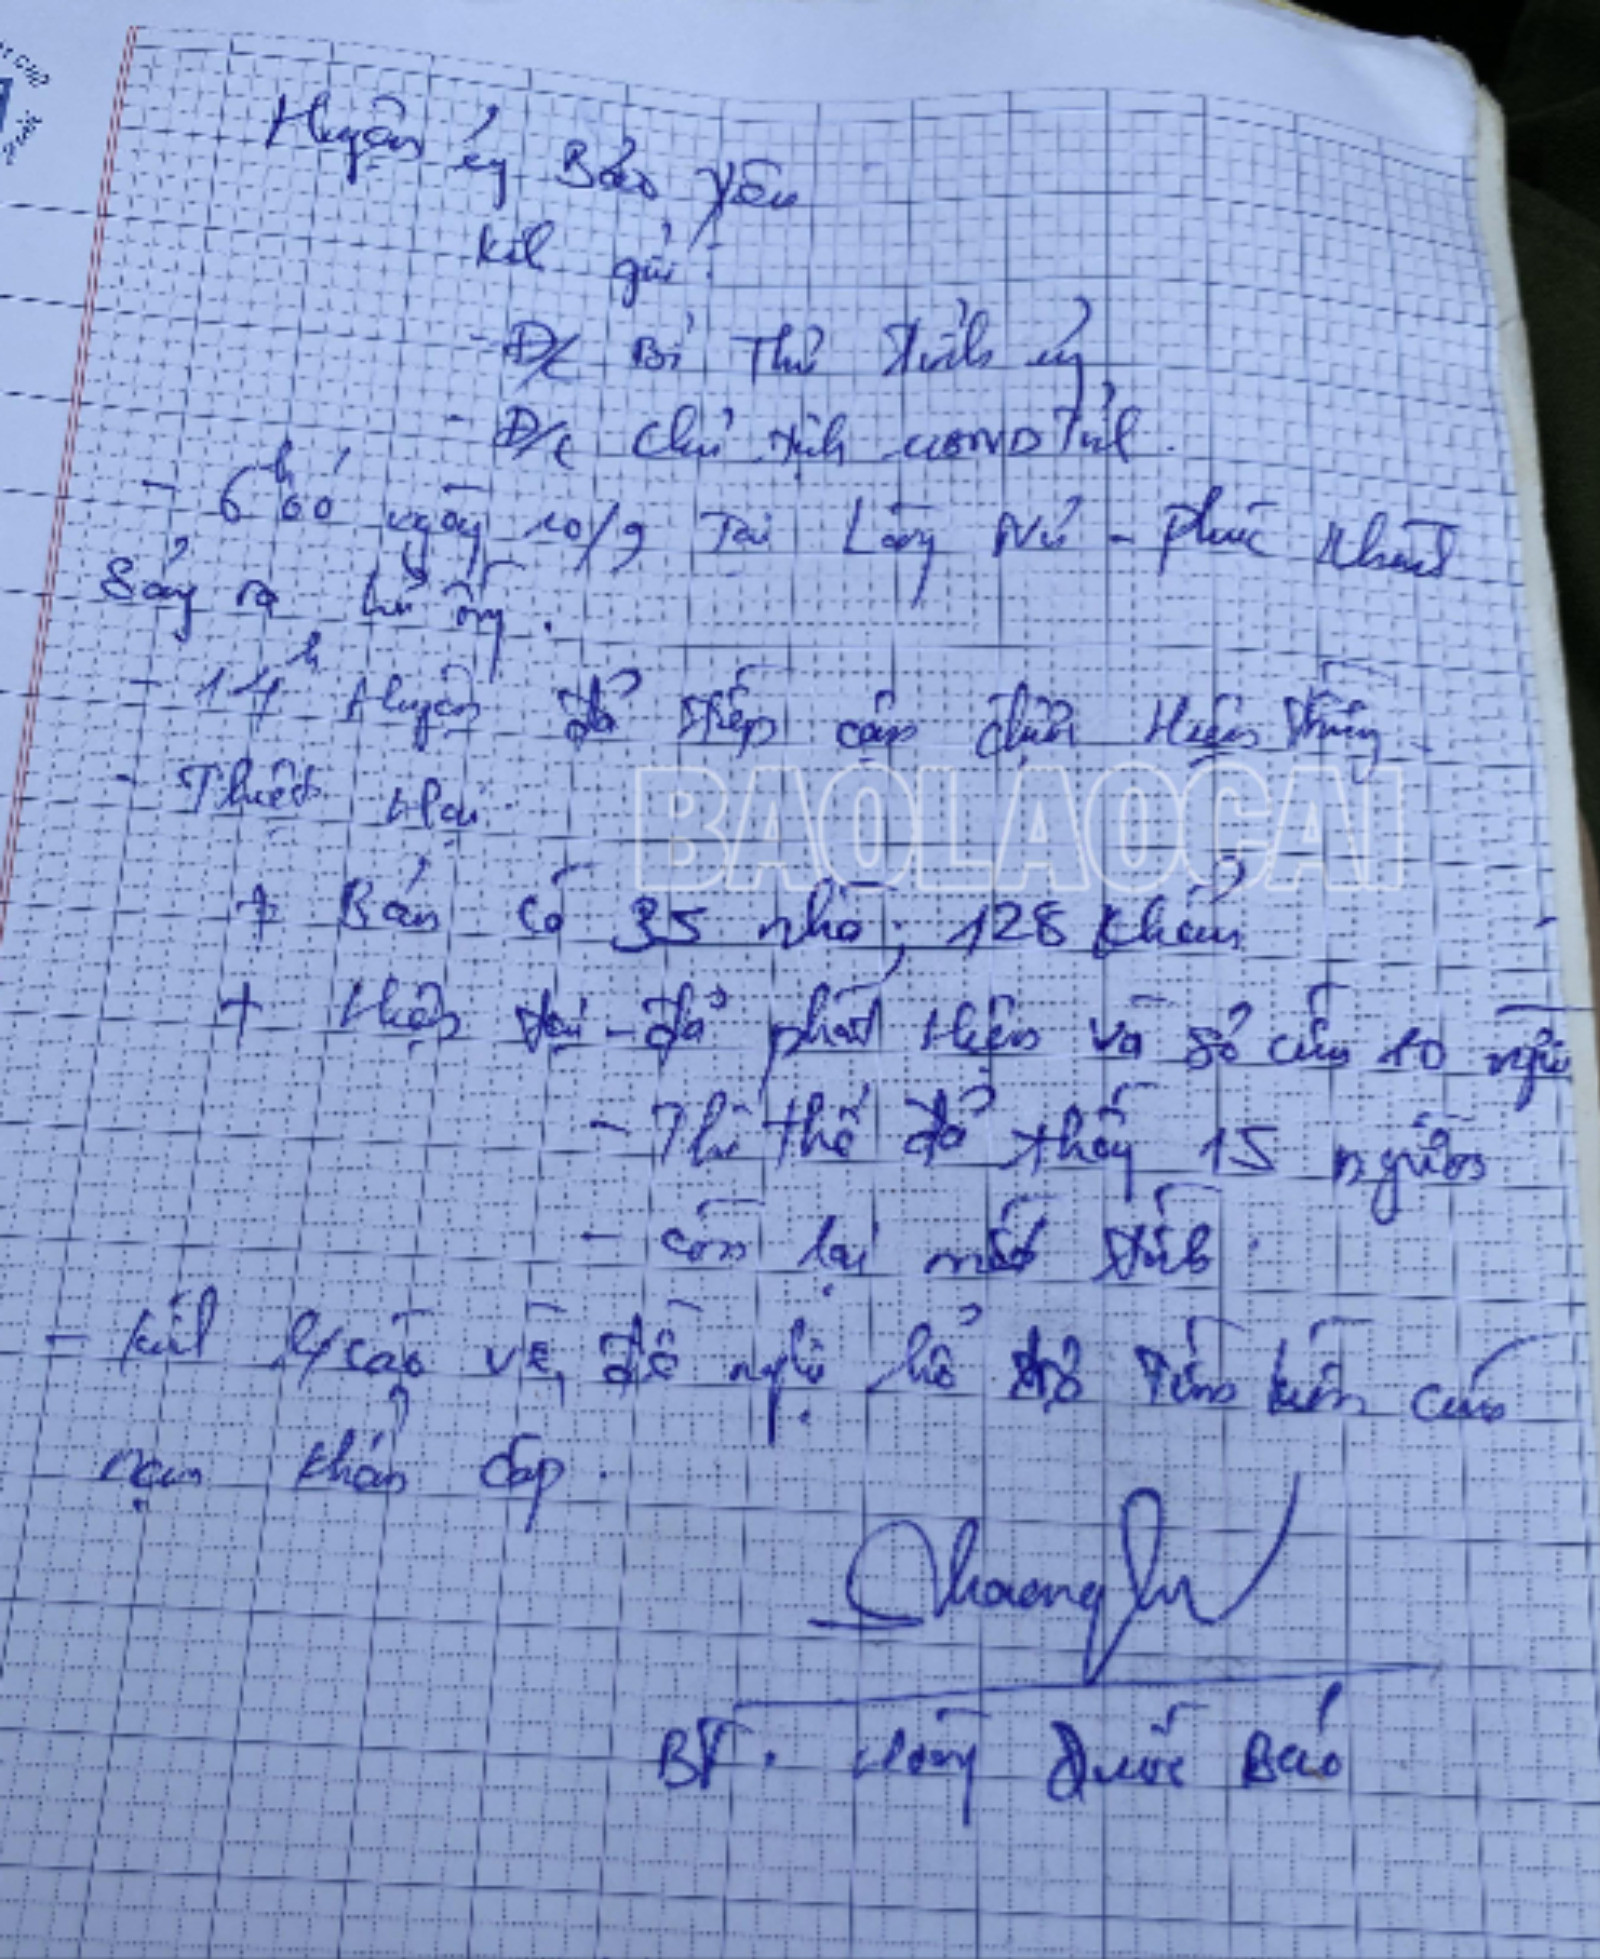 Huyện ủy Bảo Yên
Kính gửi:
- Đ/c Bí Thư Tỉnh ủy
- Đ/c Chủ tịch UBND Tỉnh.
- 6h00 ngày 10/9 Tại Làng Nủ - Phúc Khánh
Sảy ra lũ ống.
- 14h Huyện đã tiếp cận được Hiện trường
- Thiệt Hại:
+ Bản có 35 nhà; 128 khẩu
+ Hiện tại - đã phát hiện và sơ cứu 10 người
- Thi thể đã thấy 15 người
- còn lại mất tích.
- Kính b/cáo về, đề nghị hỗ trợ tìm kiếm cứu
nạn khẩn cấp.
BT. Hoàng Quốc Bảo
BAOLAOCAI